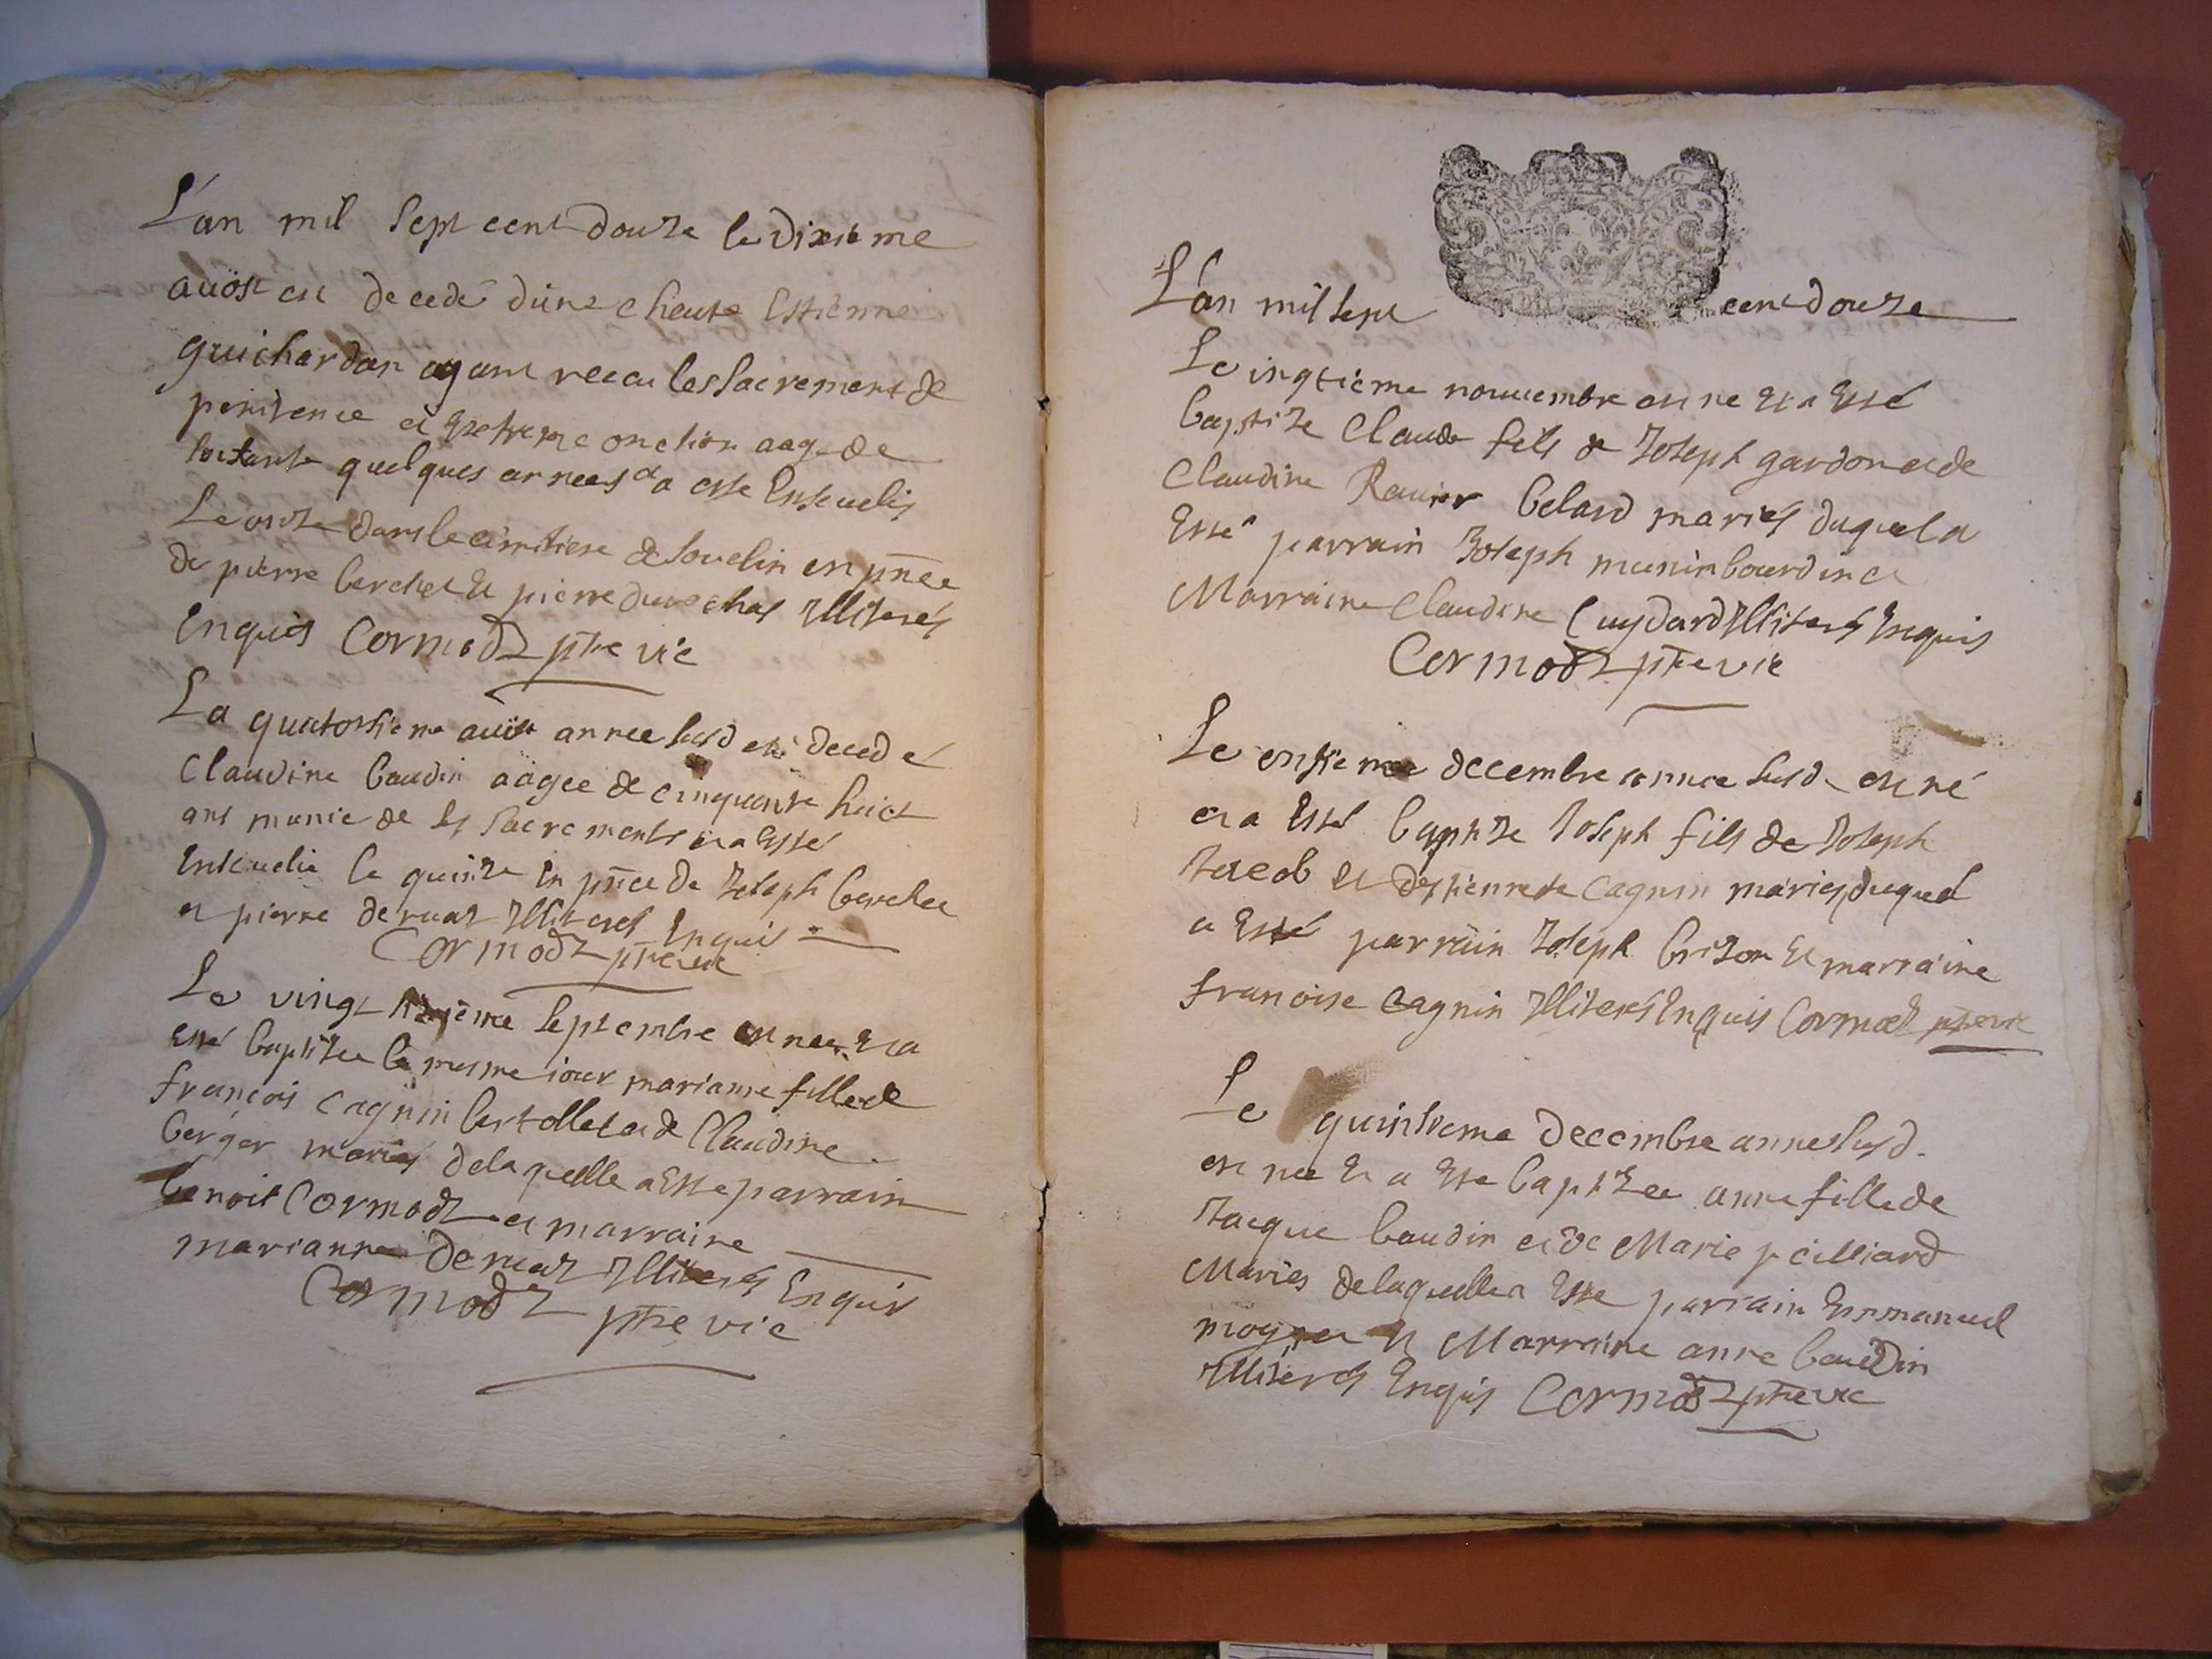 L'an mil sept cent douze le dixième
auöst est decedé d'une cheute Estienne
guichardan ayant receu les sacrement de
penitence et extreme onction aagé de
soixante quelques années & a esté ensevelis
Le onze dans le cimitiere de souclin en pñce
de pierre berchet et pierre illiterés
Enquis Cormodz ptre vic
La quatorsieme aust annee susd est decedé
Claudine baudin aägee de cinquante huict
ans munie de ses sacrements et a Esté
Ensevelie le quinze En pñce de Joseph berchet
et pierre deruaz Illiterés Enquis
Cormodz ptre vic
Le vingt septembre est nee et a
Esté baptisee le mesme iour marianne fille de
françois cagnin bertollet et de Claudine
berger mariés de laquelle a Esté parrain
benoit Cormodz et marraine
marianne deruaz Illiterés Enquis
Cormodz ptre vic
L'an mil sept cent douze
Le vingtième nouuembre est ne Et a Esté
baptize Claude fils de Joseph gardon et de
Claudine Ravier belard mariés duquel a
Esté parrain Joseph munin bourdin et
Marraine Claudine Cuydard Illiterés Enquis
Cormodz ptre vic
Le onsieme decembre annee susd est né
et a Esté baptize Joseph fils de Joseph
Jacob et d'estiennete cagnin mariés, duquel
a Esté parrain Joseph brizon Et marraine
francoise cagnin Illiterés Enquis Cormodz ptre vic
Le quinsieme decembre annee susd.
est nee Et a Esté baptizee anne fille de
Jacque baudin et de Marie peilliard
Mariés de laquelle a Esté parrain Emmanuel
moynet et Marraine anne baudin
Illiterés Enquis Cormodz ptre vic